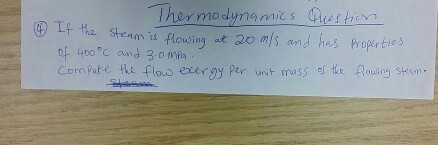 Thermodynamics Question
④ If the steam is flowing at 20 m/s and has properties
of 400°C and 3.0 MPa.
Compute the flow exergy per unit mass of the flowing steam.